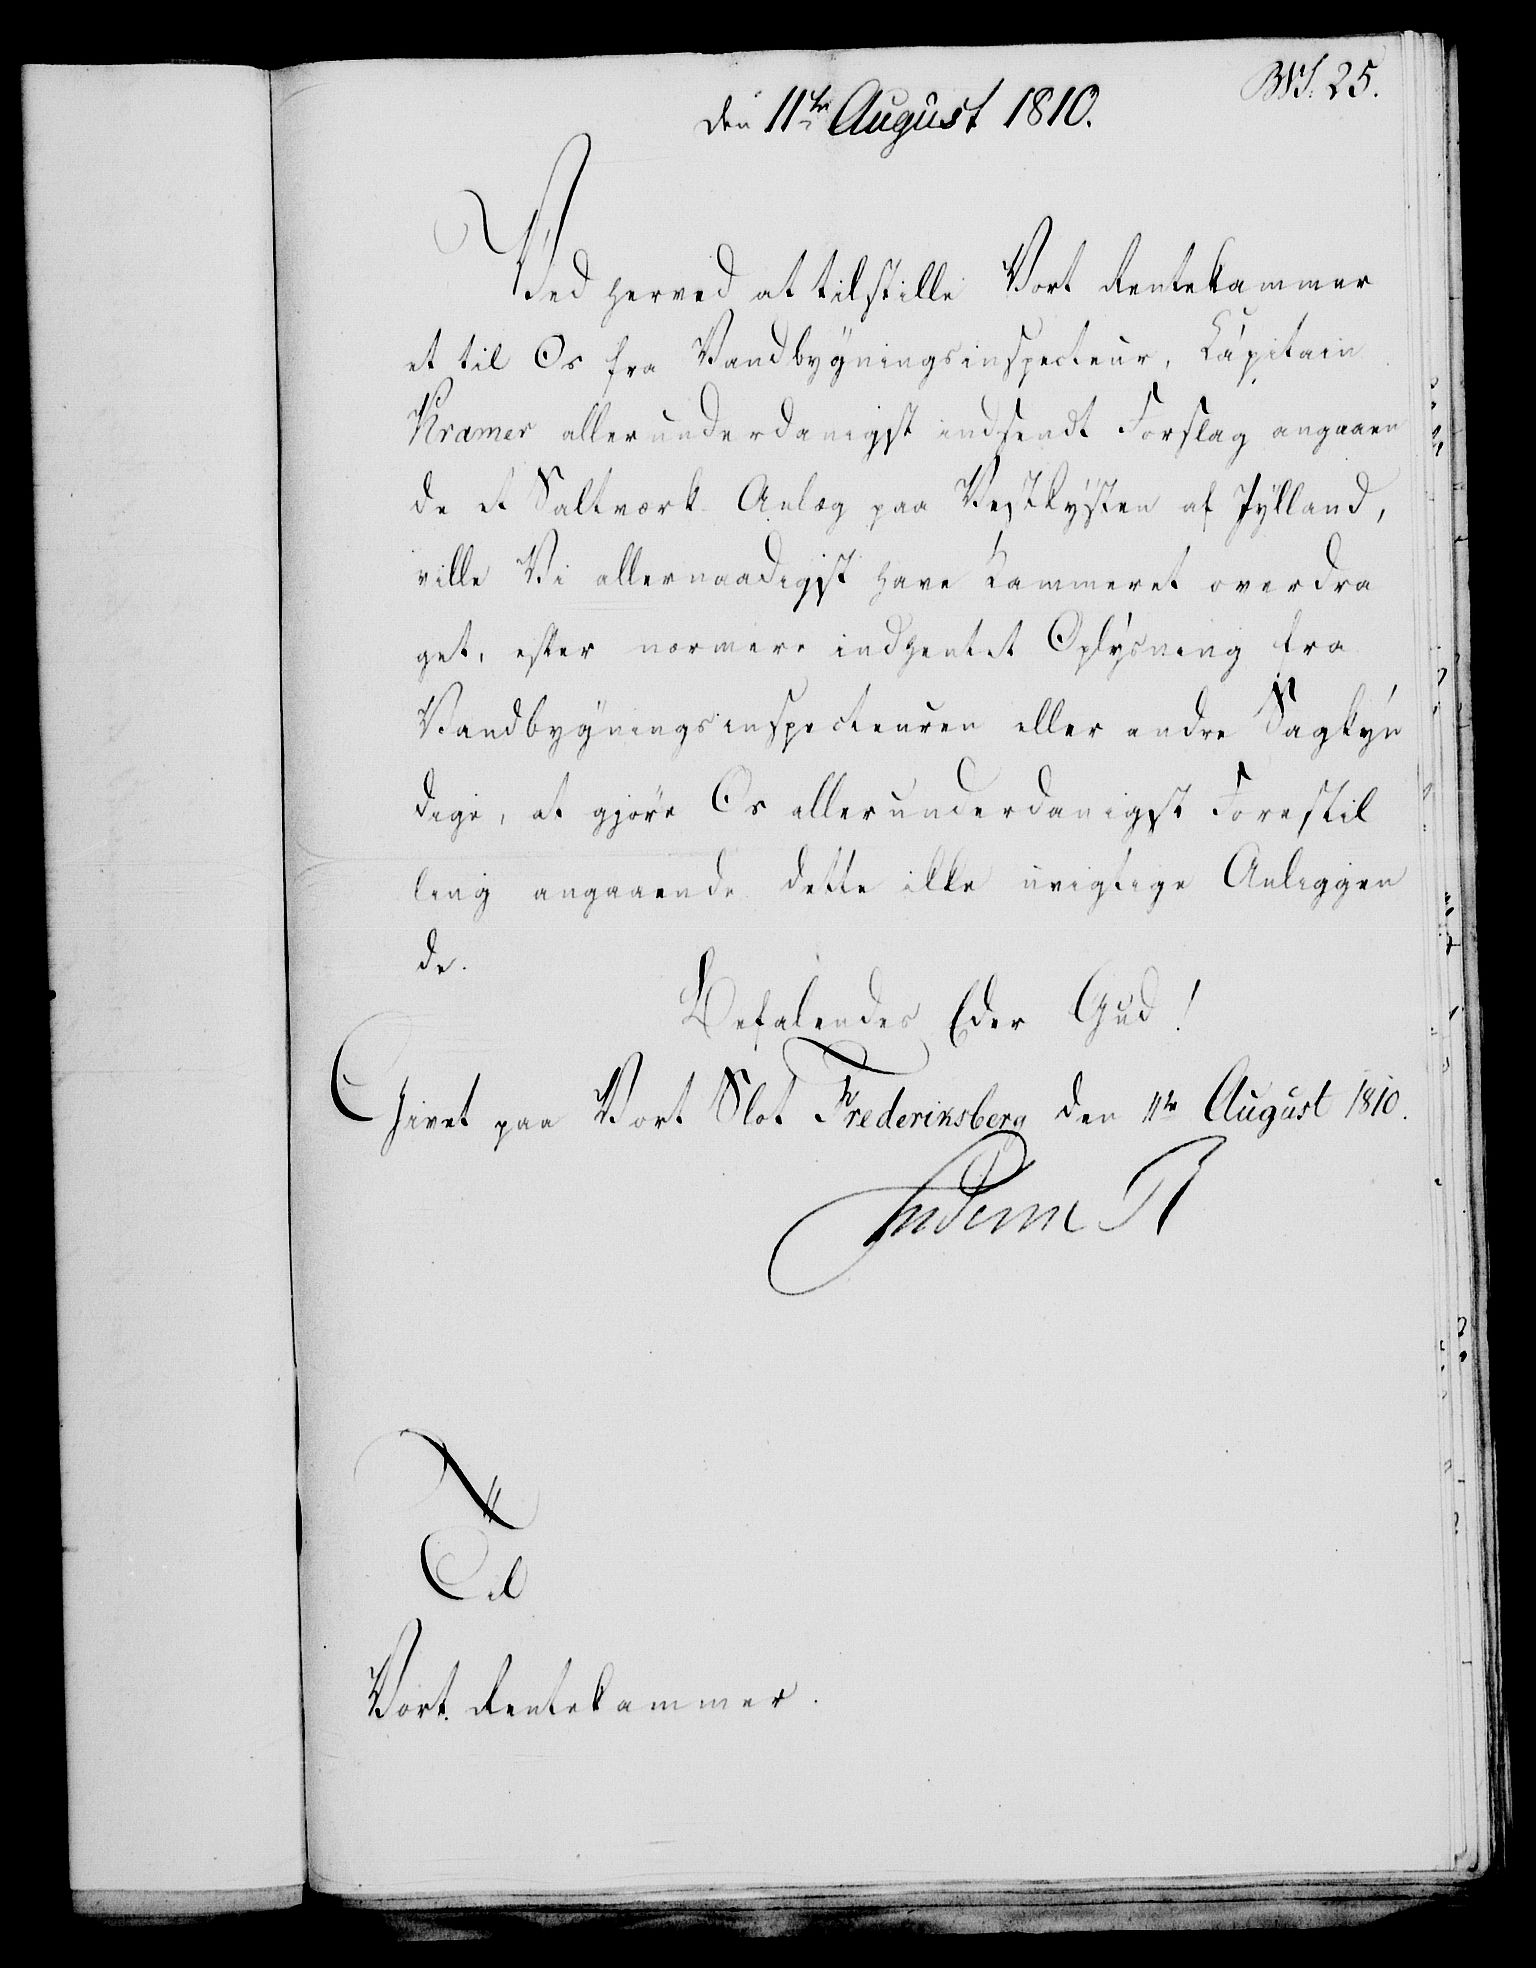 den 11te August 1810.
25.
Ved herved at tilstille Vort Rentekammer
et til Os fra Vandbygningsinspecteur, Capitain
Kramer allerunderdanigst indsendt Forslag angaaen
de et Saltværk Anlæg paa Vestkysten af Jylland,
ville Vi allernaadigst have Kammeret overdra
get, efter nærmere indhentet Oplysning fra
Vandbygningsinspecteuren eller andre Sagkyn
dige, at gjøre Os allerunderdanigst Forestil
ling angaaende dette ikke uvigtige Anliggen
de.
Befalendes Eder Gud!
Givet paa Vort Slot Frederiksberg den 11te August 1810.
Frederik R
Til
Vort Rentekammer.